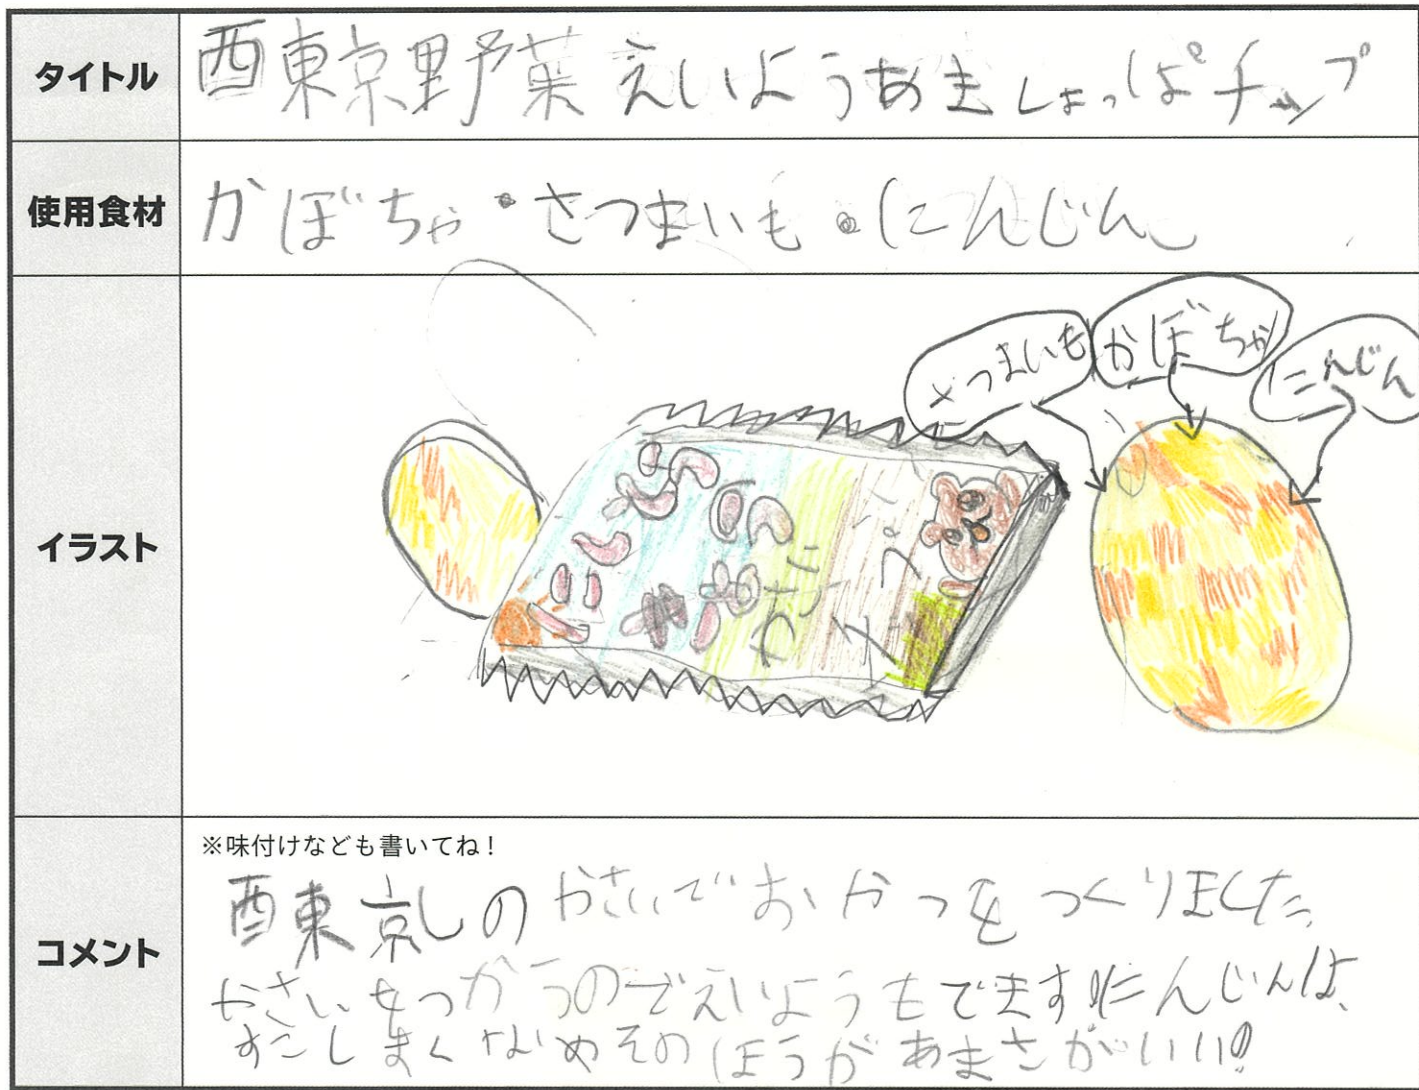 タイトル
西東京野菜えいようあましょっぱチップ
使用食材
かぼちゃ・さつまいも・にんじん
イラスト
さつまいも
かぼちゃ
にんじん
チップ
コメント
※味付けなども書いてね！
西東京しのやさいでおやつをつくりました。
やさいをつかうのでえいようもできますにんじんは、
すこしすくなめそのほうがあまさがいい!